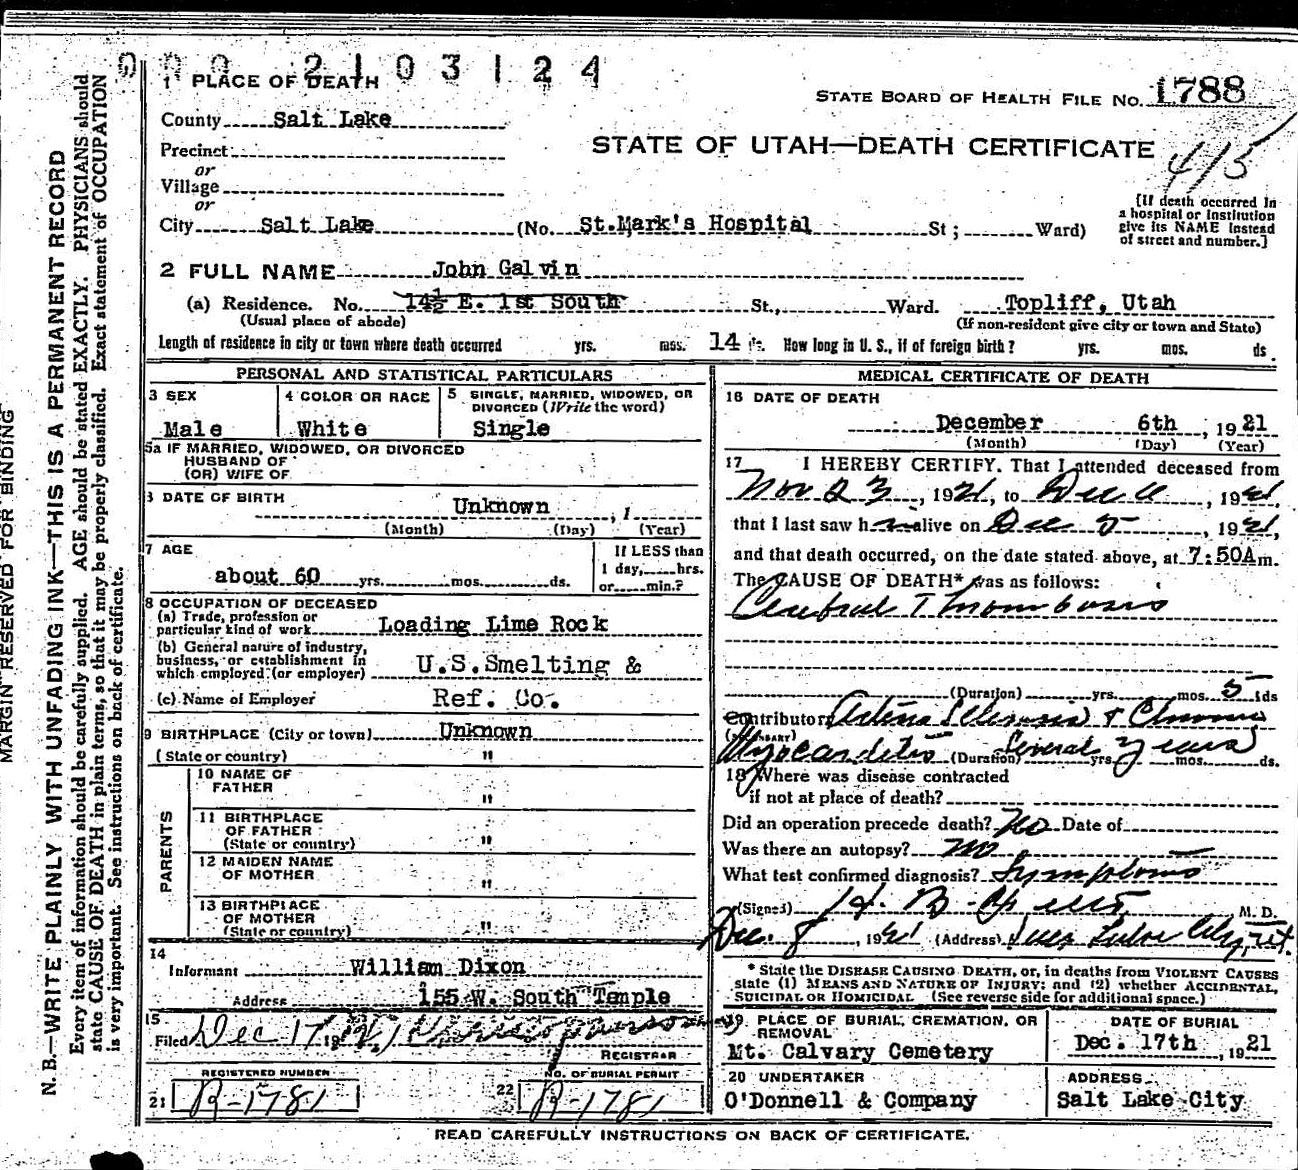 000 2103124
1 PLACE OF DEATH
STATE BOARD OF HEALTH FILE NO. 1788
County Salt Lake
STATE OF UTAH—DEATH CERTIFICATE
415
Precinct
or
Village
or
City Salt Lake (No. St.Mark's Hospital St; Ward)
[If death occurred in
a hospital or institution
give its NAME instead
of street and number.]
2 FULL NAME John Galvin
(a) Residence. No. 14½ E. 1st South St., Ward. Topliff, Utah
(Usual place of abode) (If non-resident give city or town and State)
Length of residence in city or town where death occurred yrs. mos. 14 ds. How long in U. S., if of foreign birth? yrs. mos. ds.
PERSONAL AND STATISTICAL PARTICULARS
3 SEX
Male
4 COLOR OR RACE
White
5 SINGLE, MARRIED, WIDOWED, OR
DIVORCED (Write the word)
Single
5a IF MARRIED, WIDOWED, OR DIVORCED
HUSBAND OF
(OR) WIFE OF
6 DATE OF BIRTH
Unknown , 1
(Month) (Day) (Year)
7 AGE
about 60 yrs. mos. ds.
If LESS than
1 day, hrs.
or min.?
8 OCCUPATION OF DECEASED
(a) Trade, profession or
particular kind of work Loading Lime Rock
(b) General nature of industry,
business, or establishment in
which employed (or employer) U.S.Smelting &
(c) Name of Employer Ref. Co.
9 BIRTHPLACE (City or town) Unknown
(State or country) "
PARENTS
10 NAME OF
FATHER "
11 BIRTHPLACE
OF FATHER
(State or country) "
12 MAIDEN NAME
OF MOTHER "
13 BIRTHPLACE
OF MOTHER
(State or country) "
14
Informant William Dixon
Address 155 W. South Temple
15
Filed Dec 17 19
REGISTRAR
REGISTERED NUMBER
21 R-1781
NO. OF BURIAL PERMIT
22 R-1781
MEDICAL CERTIFICATE OF DEATH
16 DATE OF DEATH
December 6th , 1921
(Month) (Day) (Year)
17 I HEREBY CERTIFY. That I attended deceased from
Nov 23, 1921, to Dec 6, 1921,
that I last saw h alive on Dec 5, 1921,
and that death occurred, on the date stated above, at 7:50Am.
The CAUSE OF DEATH* was as follows:
Cerebral Thrombosis
(Duration) yrs. mos. 5 ds
Contributory Arterio Sclerosis & Chronic
(SECONDARY)
Myocarditis (Duration) Several years yrs. mos. ds.
18 Where was disease contracted
if not at place of death?
Did an operation precede death? No Date of
Was there an autopsy? no
What test confirmed diagnosis? Symptoms
(Signed) H. B. M. D.
Dec. 8, 1921 (Address) Salt Lake City, Ut.
* State the DISEASE CAUSING DEATH, or, in deaths from VIOLENT CAUSES
state (1) MEANS AND NATURE OF INJURY; and (2) whether ACCIDENTAL,
SUICIDAL OR HOMICIDAL (See reverse side for additional space.)
19 PLACE OF BURIAL, CREMATION, OR
REMOVAL
Mt. Calvary Cemetery
DATE OF BURIAL
Dec. 17th , 1921
20 UNDERTAKER
O'Donnell & Company
ADDRESS
Salt Lake City
READ CAREFULLY INSTRUCTIONS ON BACK OF CERTIFICATE.
MARGIN RESERVED FOR BINDING
N. B.—WRITE PLAINLY WITH UNFADING INK—THIS IS A PERMANENT RECORD
Every item of information should be carefully supplied. AGE should be stated EXACTLY. PHYSICIANS should
state CAUSE OF DEATH in plain terms, so that it may be properly classified. Exact statement of OCCUPATION
is very important. See instructions on back of certificate.